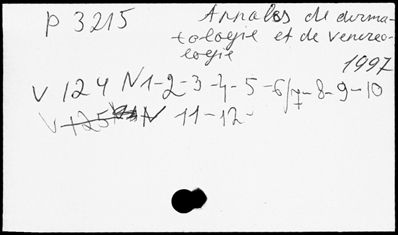 P 3215 Annales de derma-
tologie et de venereo-
logie
1997
V 124 N 1-2-3-4-5-6/7-8-9-10
V 125 N 11-12-